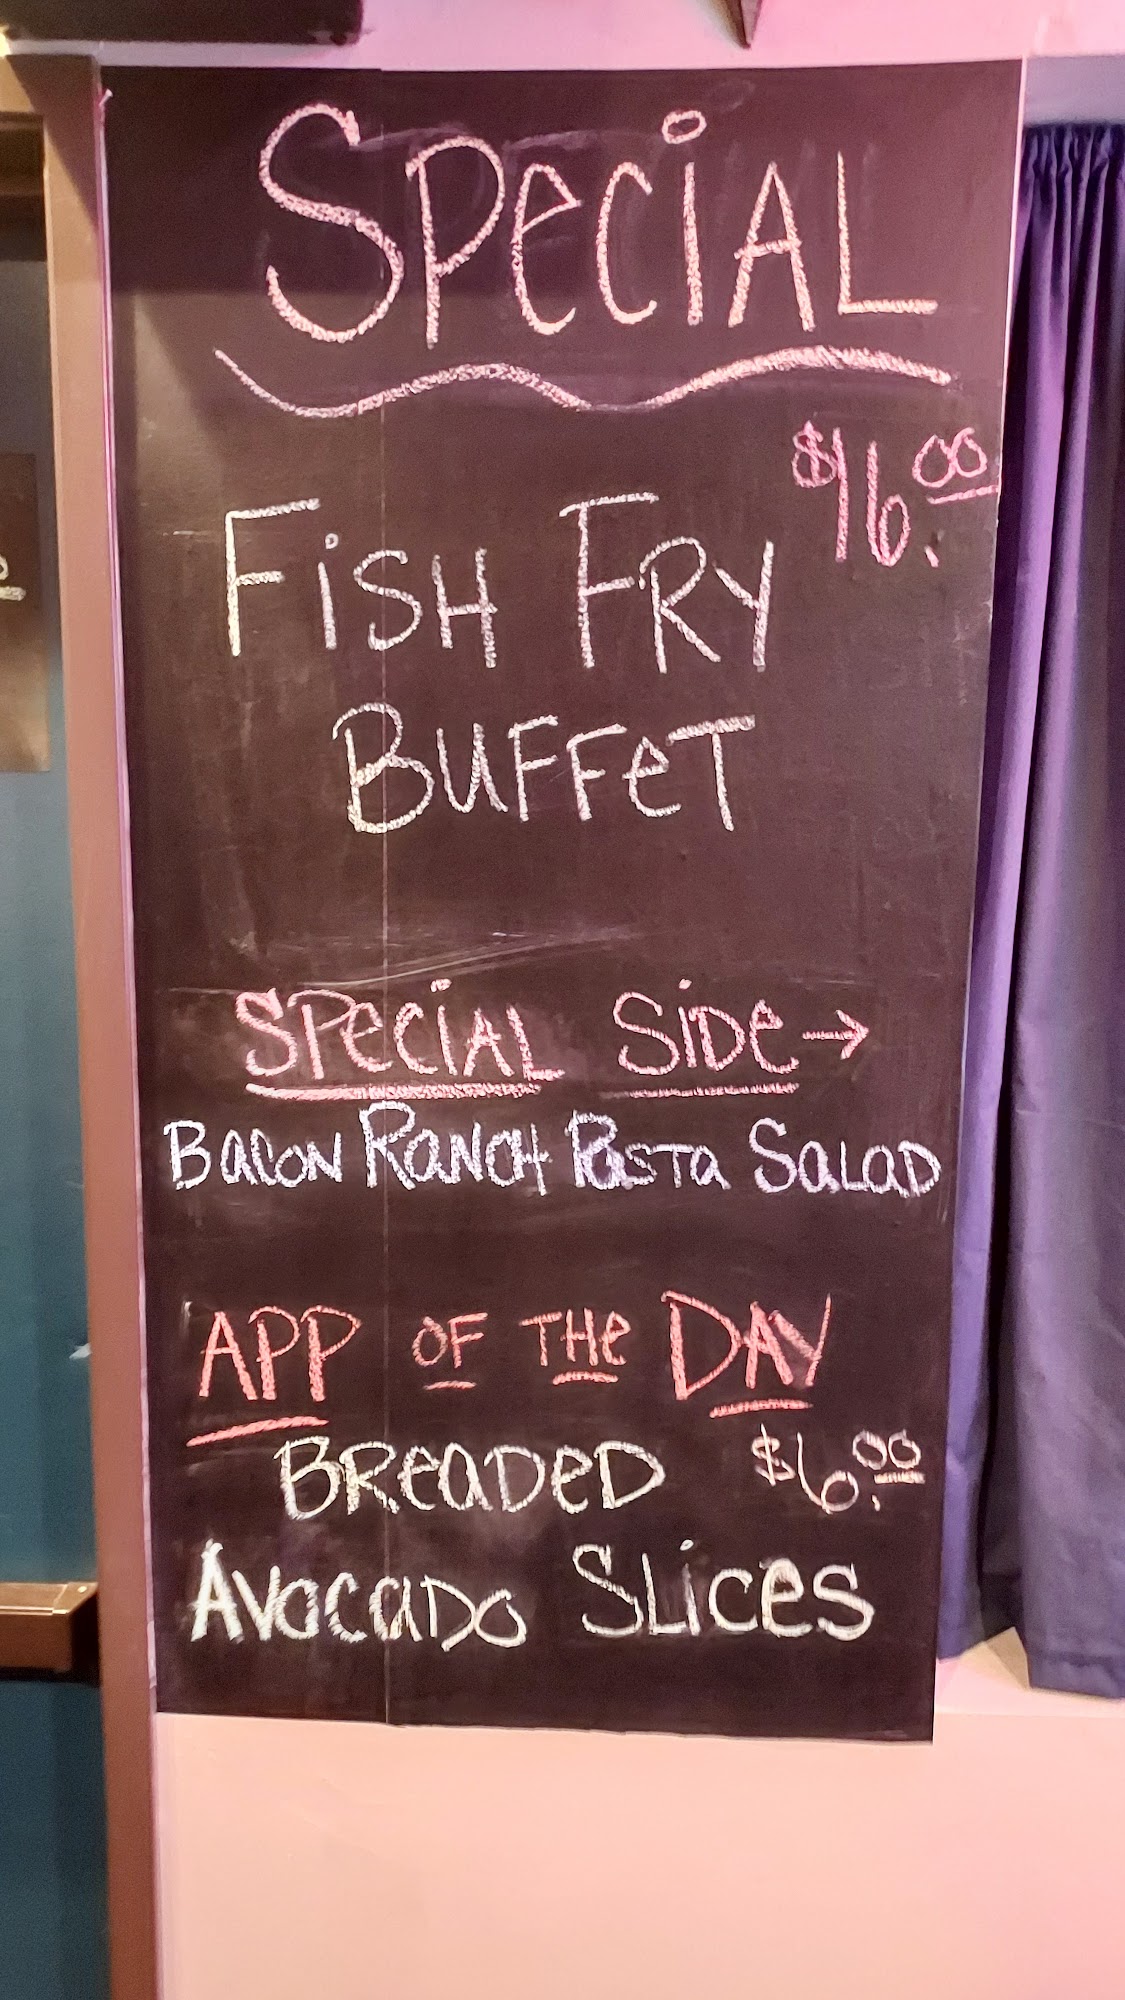 Special
$16.00
Fish Fry
Buffet
Special Side →
Bacon Ranch Pasta Salad
App of the Day
Breaded $6.00
Avocado Slices